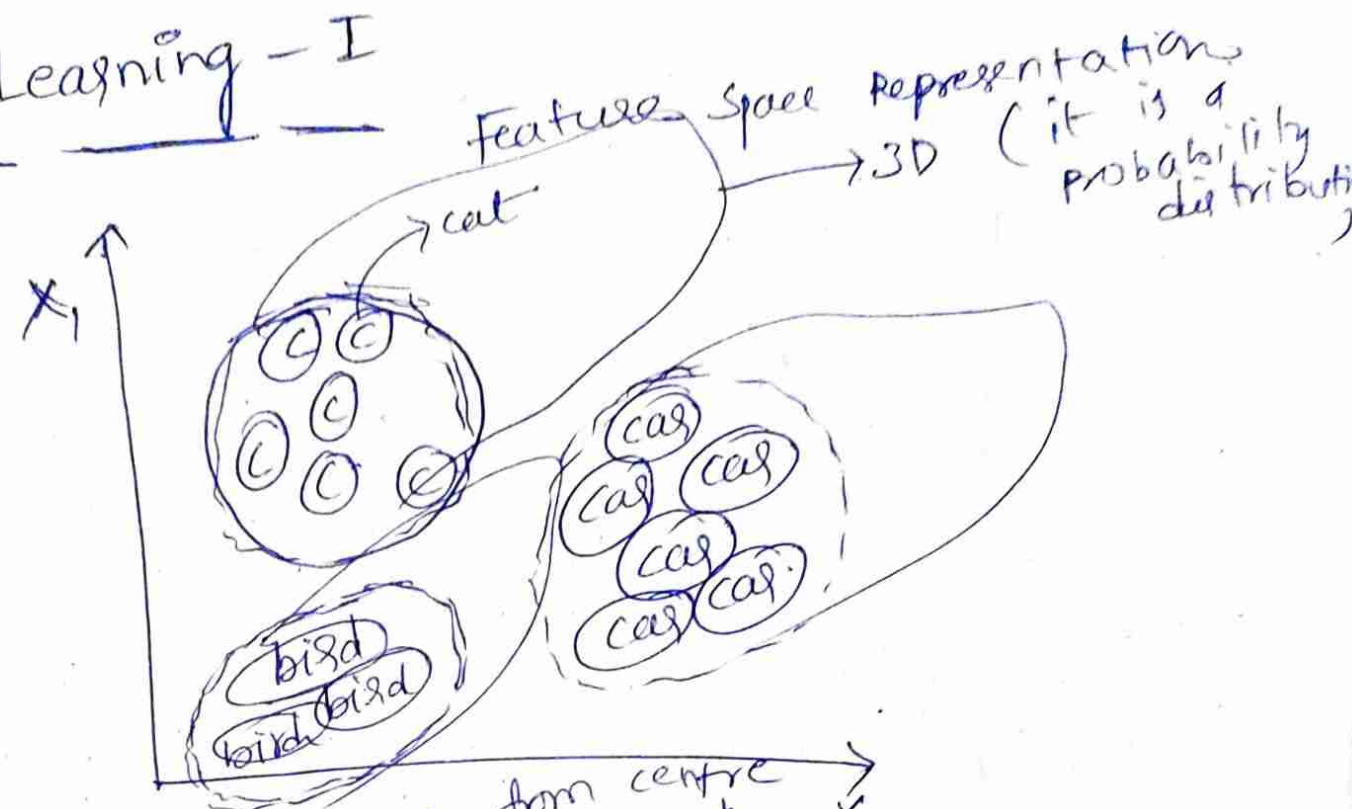 Learning - I
Feature Space Representation
→ 3D (it is a
probability
distributi
→ cat
X₁
C C
C
C C C
car
car car
car
car car
bird
bird
bird
from centre